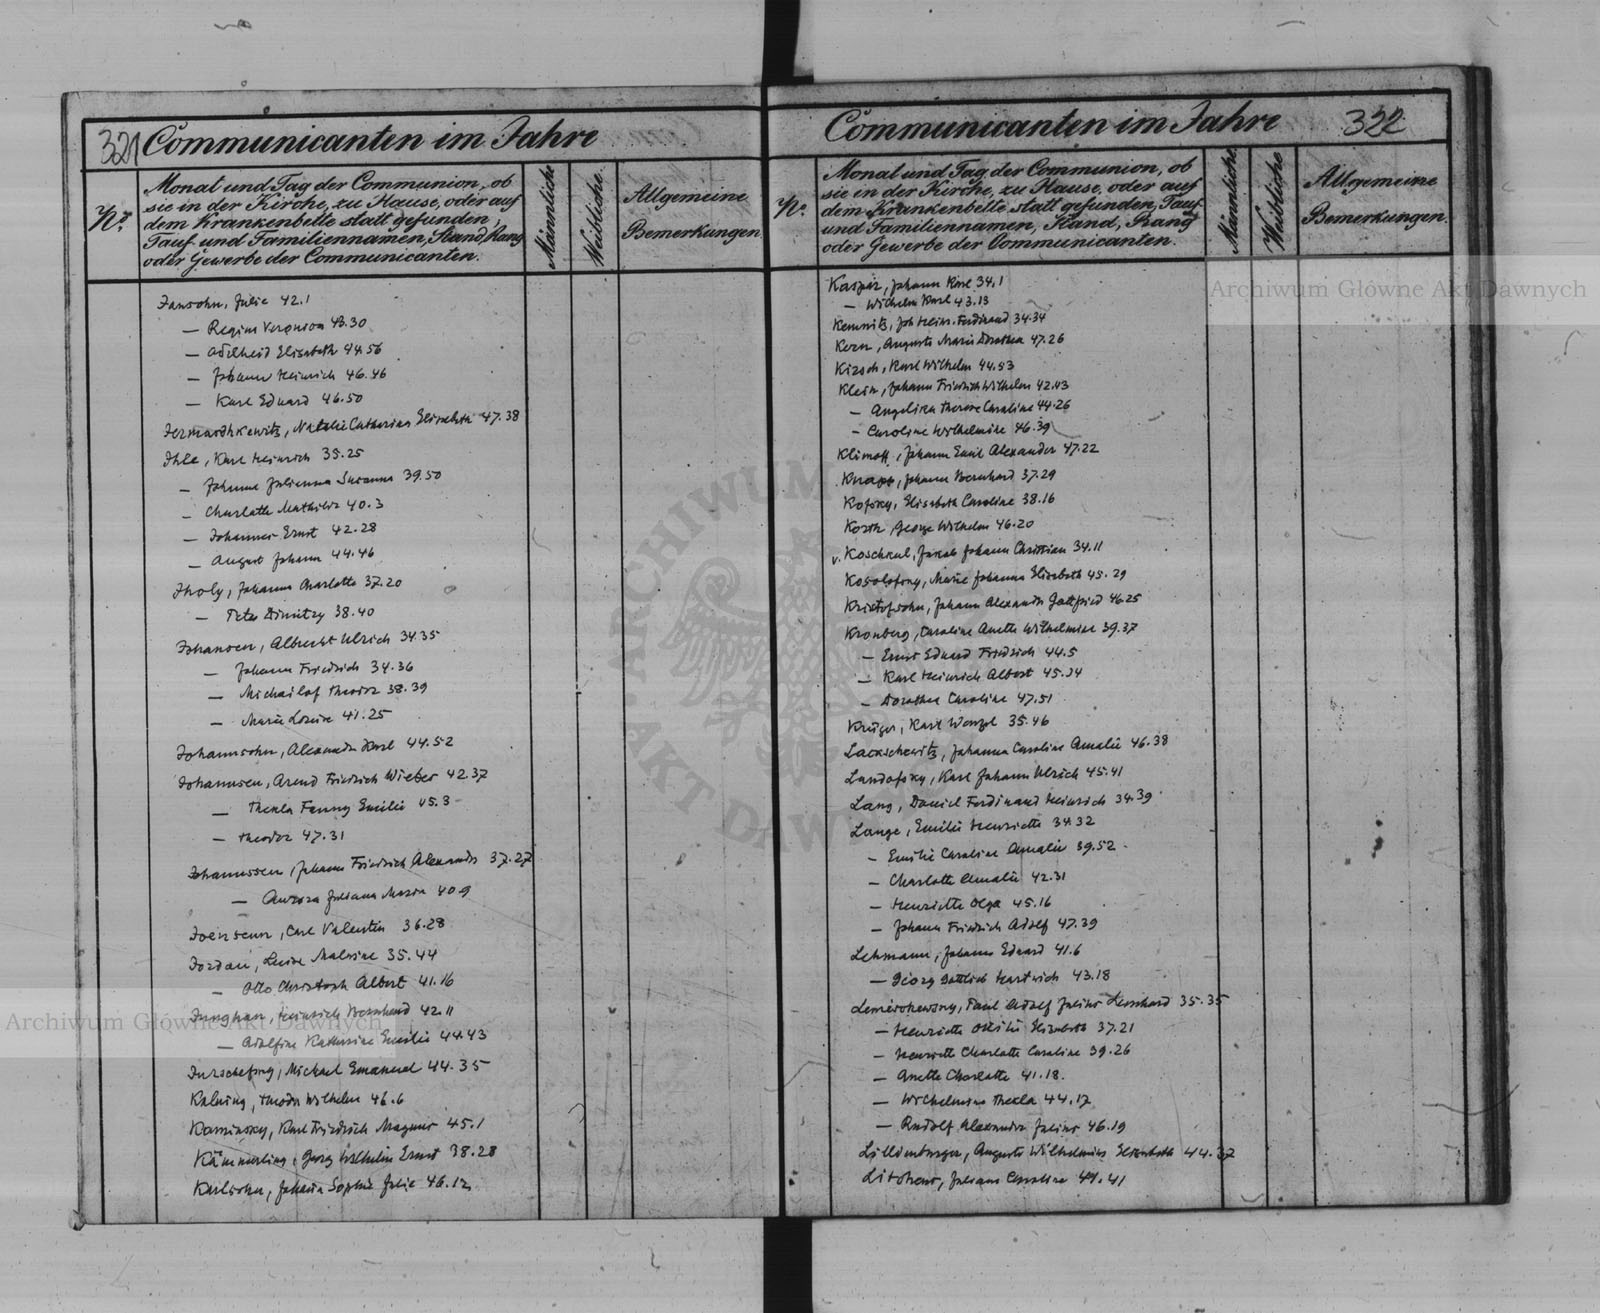 321 Communicanten im Jahre
No.
Monat und Tag der Communion, ob
sie in der Kirche, zu Hause, oder auf
dem Krankenbette statt gefunden,
Tauf- und Familiennamen, Stand, Rang
oder Gewerbe der Communicanten.
Männliche
Weibliche
Allgemeine
Bemerkungen.
Jansohn, Julie 42.1
— Regina Veronica 43.30
— Adelheid Elisabeth 44.56
— Johann Heinrich 46.46
— Karl Eduard 46.50
Jermaschkewitz, Natalie Catharina Elisabeth 47.38
Ihle, Karl Heinrich 35.25
— Johanna Julianna Susanna 39.50
— Charlotte Mathilde 40.3
— Johannes Ernst 42.28
— August Johann 44.46
Jholy, Johanna Charlotte 37.20
— Peter Dimitry 38.40
Johansen, Albrecht Ulrich 34.35
— Johann Friedrich 34.36
— Michailof Theodor 38.39
— Marie Louise 41.25
Johannsohn, Alexander Karl 44.52
Johannsen, Arend Friedrich Wieber 42.37
— Thekla Fanny Emilie 45.3
— Theodor 47.31
Johannssen, Johann Friedrich Alexander 37.27
— Aurora Juliana Maria 40.9
Joenssenn, Carl Valentin 36.28
Jordan, Luise Malwine 35.44
— Otto Christoph Albert 41.16
Junghan, Heinrich Bernhard 42.11
— Adolfine Katharine Emilie 44.43
Jurschefsky, Michael Emanuel 44.35
Kalning, Theodor Wilhelm 46.6
Kaminsky, Karl Friedrich Magnus 45.1
Kämmerling, Georg Wilhelm Ernst 38.28
Karlsohn, Johanna Sophie Julie 46.12
Communicanten im Jahre 322
No.
Monat und Tag der Communion, ob
sie in der Kirche, zu Hause, oder auf
dem Krankenbette statt gefunden, Tauf-
und Familiennamen, Stand, Rang
oder Gewerbe der Communicanten.
Männliche
Weibliche
Allgemeine
Bemerkungen.
Kaspar, Johann Karl 34.1
— Wilhelm Karl 43.13
Kemnitz, Joh Heinr. Ferdinand 34.34
Kern, Auguste Marie Dorothea 47.26
Kirsch, Karl Wilhelm 44.53
Klein, Johann Friedrich Wilhelm 42.43
— Angelika Therese Caroline 44.26
— Caroline Wilhelmine 46.39
Klimoff, Johann Emil Alexander 47.22
Knapp, Johann Bernhard 37.29
Kofsky, Elisabeth Caroline 38.16
Korth, George Wilhelm 46.20
v. Koschkul, Jakob Johann Christian 34.11
Kosolofsky, Marie Johanna Elisabeth 45.29
Kristofsohn, Johann Alexander Gottfried 46.25
Kronberg, Caroline Anette Wilhelmine 39.37
— Ernst Eduard Friedrich 44.5
— Karl Heinrich Albert 45.34
— Dorothea Caroline 47.51
Krüger, Karl Wenzel 35.46
Lackschewitz, Johanna Caroline Amalie 46.38
Landofsky, Karl Johann Ulrich 45.41
Lang, Daniel Ferdinand Heinrich 34.39
Lange, Emilie Henriette 34.32
— Emilie Caroline Amalie 39.52
— Charlotte Amalie 42.31
— Henriette Olga 45.16
— Johann Friedrich Adolf 47.39
Lehmann, Johann Eduard 41.6
— Georg Gottlieb Hartwich 43.18
Lemeschewsky, Paul Adolf Julius Leonhard 35.35
— Henriette Ottilie Elisabeth 37.21
— Henriette Charlotte Caroline 39.26
— Anette Charlotte 41.18.
— Wilhelmine Thekla 44.17
— Rudolf Alexander Julius 46.19
Lillienburger, Auguste Wilhelmine Elisabeth 44.37
Litohens, Juliane Caroline 44.41
Archiwum Główne Akt Dawnych
Archiwum Główne Akt Dawnych
ARCHIWUM AKT DAWNYCH